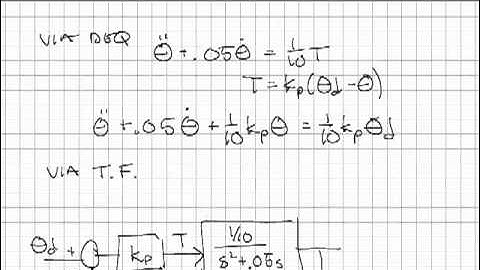 VIA DEQ
θ̈ + .05θ̇ = 1/10 T
T = kp(θd - θ)
θ̈ + .05 θ̇ + 1/10 kp θ = 1/10 kp θd
VIA T.F.
θd + kp T 1/10 / s² + .05s